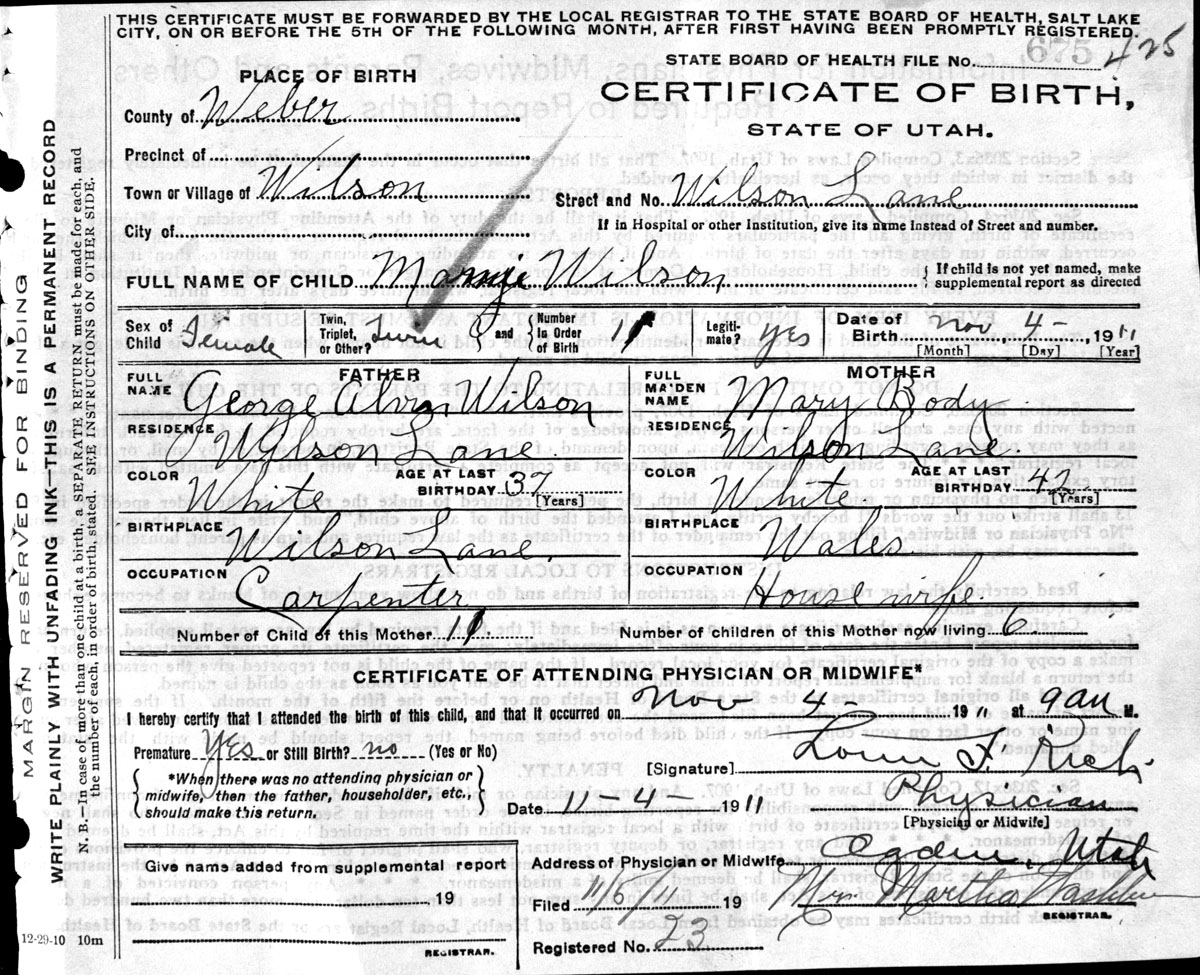 THIS CERTIFICATE MUST BE FORWARDED BY THE LOCAL REGISTRAR TO THE STATE BOARD OF HEALTH, SALT LAKE
CITY, ON OR BEFORE THE 5TH OF THE FOLLOWING MONTH, AFTER FIRST HAVING BEEN PROMPTLY REGISTERED.
STATE BOARD OF HEALTH FILE No. 675 425
PLACE OF BIRTH
CERTIFICATE OF BIRTH,
STATE OF UTAH.
County of Weber
Precinct of
Town or Village of Wilson
Street and No. Wilson Lane
City of
If in Hospital or other Institution, give its name instead of Street and number.
FULL NAME OF CHILD Wilson
{ If child is not yet named, make
supplemental report as directed
Sex of Child Female
Twin, Triplet, or Other? Twin
and { Number In Order of Birth
Legiti- mate? yes
Date of Birth Nov. 4- 1911
[Month] [Day] [Year]
FATHER
FULL NAME George Alvin Wilson
RESIDENCE Wilson Lane.
COLOR White
AGE AT LAST BIRTHDAY 37 [Years]
BIRTHPLACE Wilson Lane.
OCCUPATION Carpenter
MOTHER
FULL MAIDEN NAME Mary Body
RESIDENCE Wilson Lane.
COLOR White
AGE AT LAST BIRTHDAY 42 [Years]
BIRTHPLACE Wales
OCCUPATION Housewife
Number of Child of this Mother 11.
Number of children of this Mother now living 6
CERTIFICATE OF ATTENDING PHYSICIAN OR MIDWIFE
I hereby certify that I attended the birth of this child, and that it occurred on Nov 4- 1911 at 9 a M.
Premature Yes or Still Birth? no (Yes or No)
{ *When there was no attending physician or
midwife, then the father, householder, etc.,
should make this return. }
[Signature] Rich
Date 11-4-1911
Physician
[Physician or Midwife]
Give name added from supplemental report
19
REGISTRAR.
Address of Physician or Midwife Ogden, Utah
Filed 19 Mrs Martha
REGISTRAR.
Registered No. 23
12-29-10 10m
MARGIN RESERVED FOR BINDING
WRITE PLAINLY WITH UNFADING INK—THIS IS A PERMANENT RECORD
N. B.—In case of more than one child at a birth, a SEPARATE RETURN must be made for each, and
the number of each, in order of birth, stated. SEE INSTRUCTIONS ON OTHER SIDE.